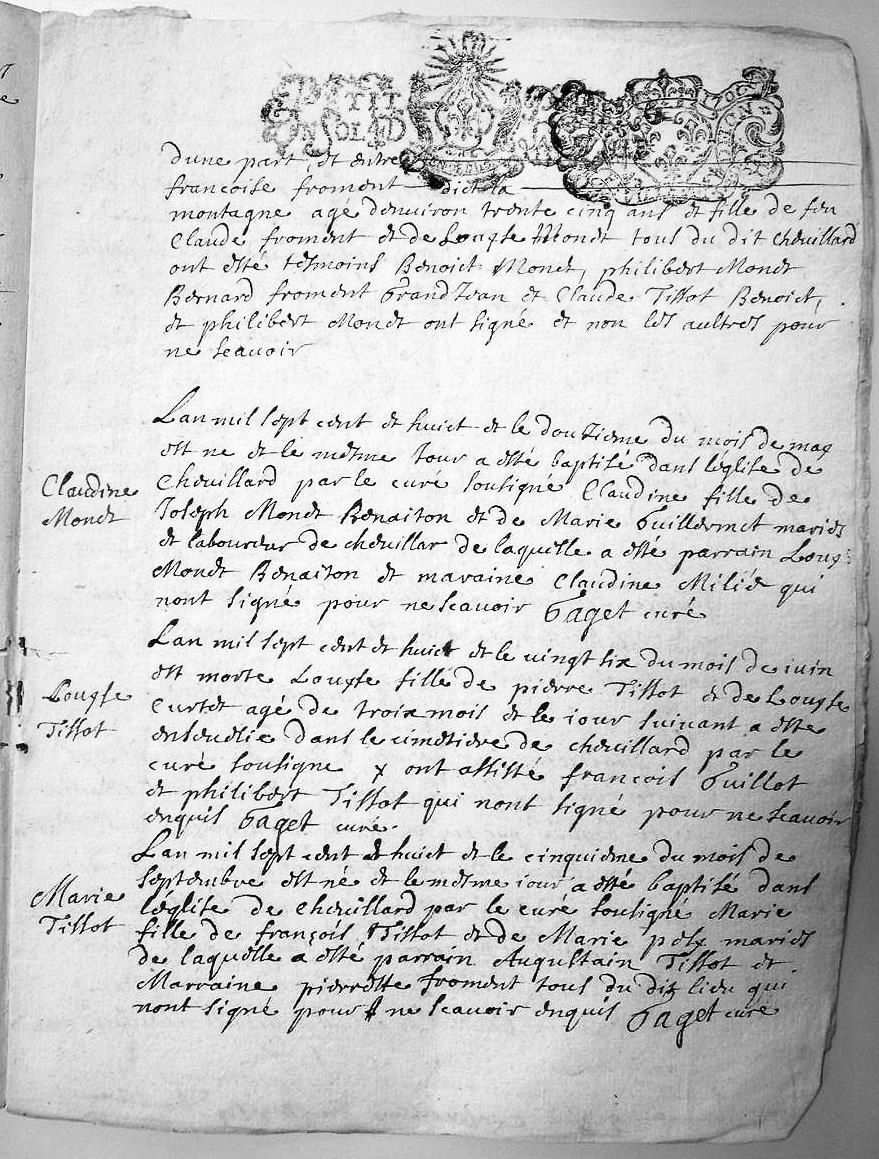 PETIT
UN SOL LAD
1708
dune part, et entre
francoise froment dict la
montagne agé denviron trente cinq ans et fille de feu
Claude froment et de Louyse Monet tous du dit Cheuillard
ont esté tesmoins Benoict Monet, philibert Monet
Bernard froment Grand Jean et Claude Tissot Benoict,
et philibert Monet ont signé et non les aultres pour
ne scauoir
Lan mil sept cent et huict et le douzieme du mois de may
est ne et le mesme Jour a esté baptisé dans léglise de
Cheuillard par le curé sousigné Claudine fille de
Joseph Monet Benaiton et de Marie Guillermet mariés
et laboureur de cheuillar de laquelle a esté parrain Louys
Monet Benaiton et maraine Claudine Milié qui
nont signé pour ne scauoir Gaget curé
Claudine
Monet
Lan mil sept cent et huict et le vingt six du mois de iuin
est morte Louyse fille de pierre Tissot et de Louyse
Curtet agé de troix mois et le iour suiuant a esté
enseuelie dans le cimetiere de cheuillard par le
curé sousigne y ont assisté francois Guillot
et philibert Tissot qui nont signé pour ne scauoir
enquis Gaget curé.
Louyse
Tissot
Lan mil sept cent et huict et le cinquieme du mois de
septembre est né et le mesme iour a esté baptisé dans
léglise de cheuillard par le curé sousigné Marie
fille de françois Tissot et de Marie poly mariés
de laquelle a esté parrain Augustain Tissot et
Marraine pierrette froment tous du dit lieu qui
nont signé pour ne scauoir enquis Gaget cure
Marie
Tissot